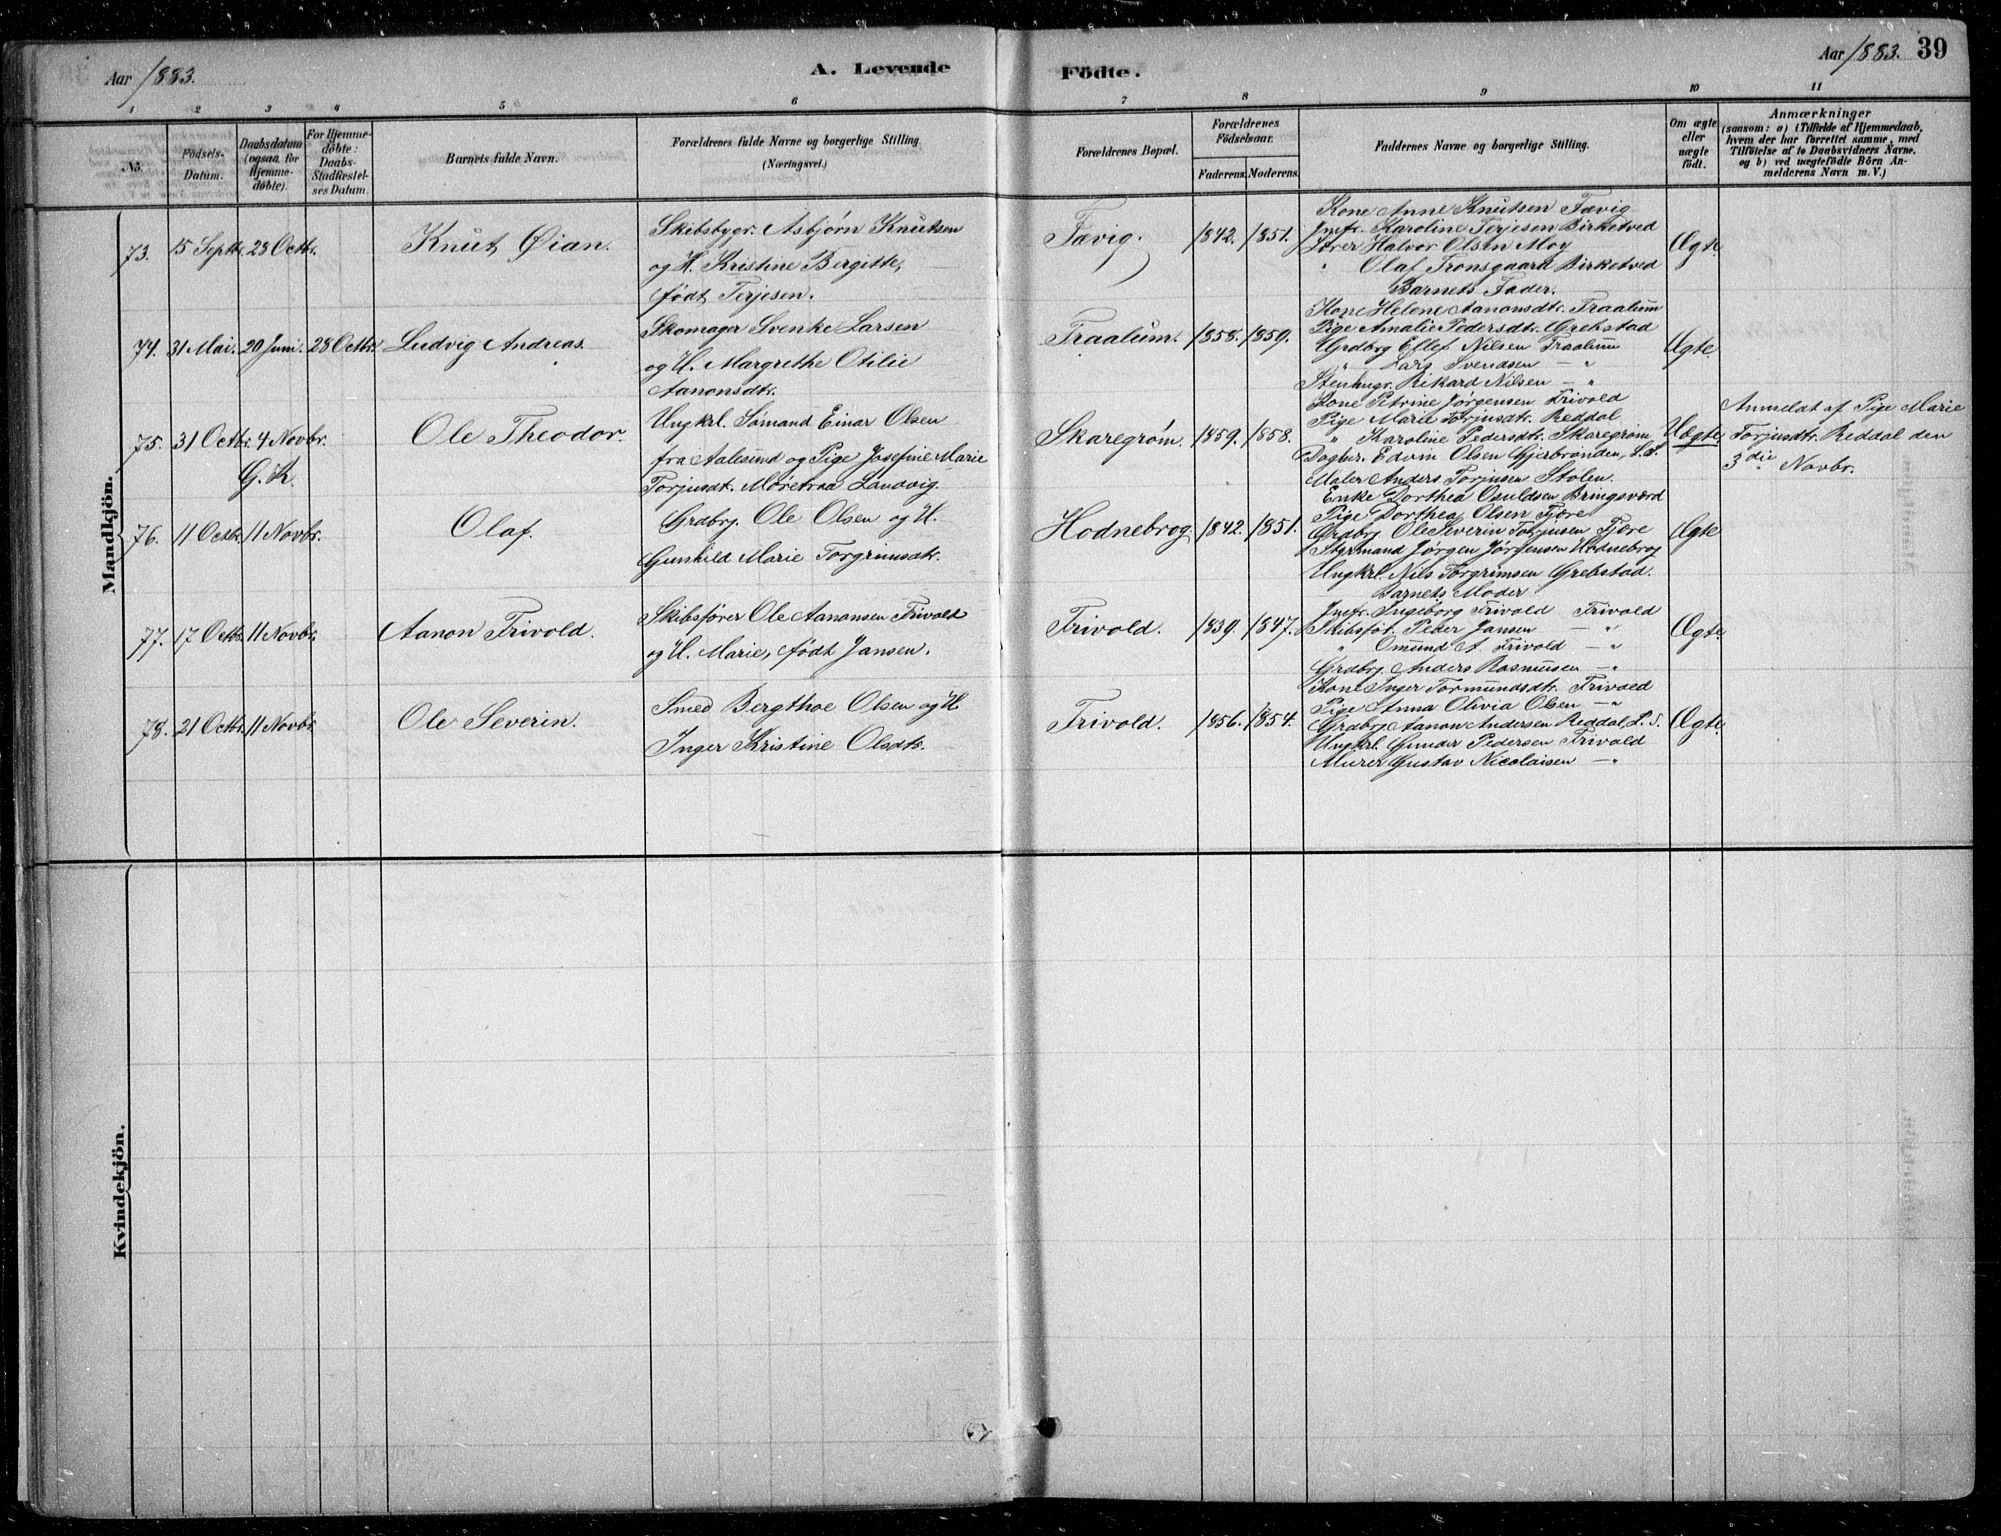 Aar 1883.
A. Levende Födte.
Aar 1883. 39
1 2 3 4 5 6 7 8 9 10 11
No.
Födsels-Datum.
Daabsdatum (ogsaa for Hjemmedöbte).
For Hjemmedöbte: Daabs-Stadfæstelses Datum.
Barnets fulde Navn.
Forældrenes fulde Navne og borgerlige Stilling
(Næringsvei.)
Forældrenes Bopæl.
Forældrenes Födselsaar.
Faderens. Moderens.
Faddernes Navne og borgerlige Stilling.
Om ægte eller uægte födt.
Anmærkninger
(saasom: a) i Tilfælde af Hjemmedaab, hvem der har forrettet samme, med Tilföielse af to Daabsvidners Navne. og b) ved uægtefödte Börn Anmelderens Navn m. V.)
Mandkjön.
73. 15 Septr. 28 Octbr. Knut Øian.
Skibsbygr. Asbjørn Knutsen
og H. Kristine Bergitte,
født Terjesen.
Fævig. 1842. 1851.
Kone Anne Knutsen Fævig
Jmfr. Karoline Terjesen Birketved
Fører Halvor Olsen Moy
" Olaf Tronsgaard Birketved
Barnets Fader.
Ægte.
74. 31 Mai. 20 Juni. 28 Octbr. Ludvig Andreas.
Skomager Svenke Larsen
og H. Margrethe Otilie
Aanonsdtr.
Traalum. 1858. 1859.
Kone Helene Aanonsdtr. Traalum
Pige Amalie Pedersdtr. Grebstad
Grdbrg Ellef Nilsen Traalum
" Lars Svendsen — "
Stenhugr. Rikard Nilsen — "
Ægte.
75. 31 Octbr. 4 Novbr. G. K. Ole Theodor.
Ungkrl. Sømand Einar Olsen
fra Aalesund og Pige Josefine Marie
Torjusdt. Møretraa Landvig.
Skaregrøm. 1859. 1858.
Kone Petrine Jørgensen Frivold
Pige Marie Torjusdtr. Reddal
" Karoline Pedersdtr. Skaregrøm
Dagbr. Edvin Olsen Gjerbranden, L. S.
Maler Anders Torjusen Stølen.
Uægte
Anmeldt af Pige Marie
Torjusdtr. Reddal den
3die Novbr.
76. 11 Octbr. 11 Novbr. Olaf.
Grdbrg. Ole Olsen og H.
Gunhild Marie Torgrimsdtr.
Hodnebrog 1842. 1851.
Enke Dorthea Osuldsen Bringsværd
Pige Dorthea Olsen Fjære
Grdbrg Ole Severin Torjusen Fjære
Styrmand Jørgen Jørgensen Hodnebrog
Ungkrl. Nils Torgrimsen Grebstad.
Ægte
77. 17 Octbr. 11 Novbr. Aanon Frivold.
Skibsfører Ole Aanonsen Frivold
og H. Marie, født Jansen.
Frivold. 1839. 1847.
Barnets Moder
Jmfr. Ingeborg Frivold Frivold
Skibsfør. Peder Jansen — "
" Omund A. Frivold — "
Grdbrg Anders Rasmusen — "
Ægte.
78. 21 Octbr. 11 Novbr. Ole Severin.
Smed Bergthoe Olsen og H.
Inger Kristine Olsdtr.
Frivold. 1856. 1854.
Kone Inger Tormundsdtr. Frivold
Pige Anna Olivia Olsen — "
Grdbrg Aanon Andersen Reddal, L. S.
Ungkrl. Gunder Pedersen Frivold
Murer Gustav Nicolaisen — "
Ægte.
Kvindekjön.